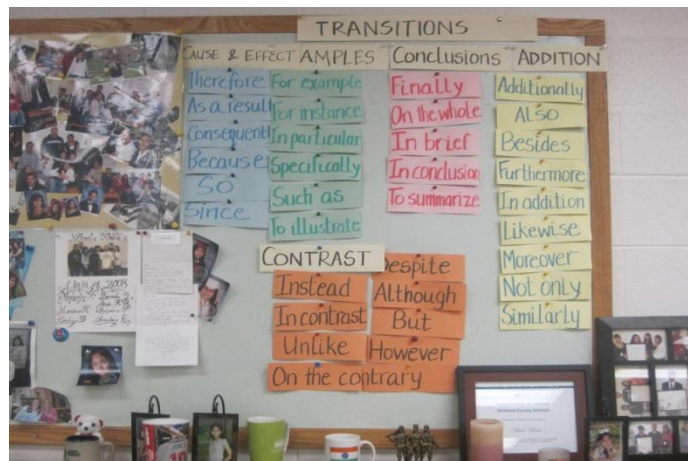 TRANSITIONS
CAUSE & EFFECT
Therefore
As a result
Consequentl
Because
So
Since
AMPLES
For example
For instance
In particular
Specifically
Such as
To illustrate
Conclusions
Finally
On the whole
In brief
In conclusion
To summarize
ADDITION
Additionally
ALSO
Besides
Furthermore
In addition
Likewise
Moreover
Not only
Similarly
CONTRAST
Instead
In contrast
Unlike
On the contrary
Despite
Although
But
However
Class of 2008
10